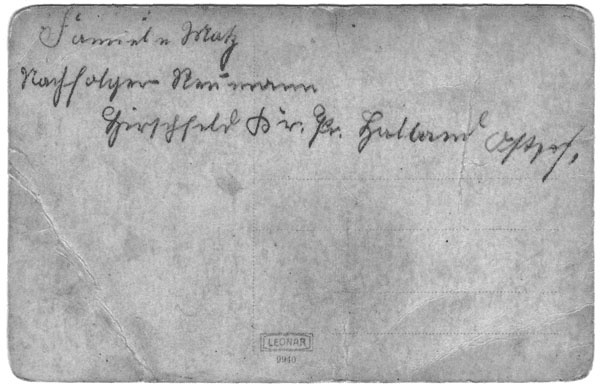 Familie Matz
Nachfolger Neumann
Hirschfeld Kr. Pr. Holland Ostpr.
LEONAR
9940